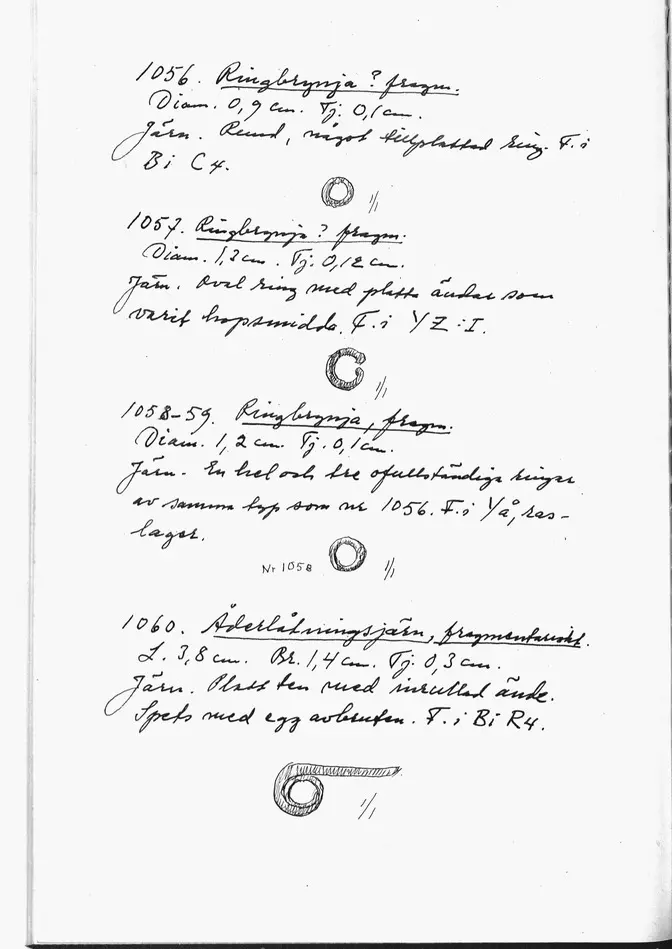 1056. Ringbrynja? fragm.
Diam. 0,9 cm. Tj. 0,1 cm.
Järn. Rund, något tillplattad ring. F. i
Bi C4.
1/1
1057. Ringbrynja? fragm.
Diam. 1,2 cm. Tj. 0,12 cm.
Järn. Oval ring med platta ändar som
varit hopsmidda. F. i YZ:I.
1/1
1058-59. Ringbrynja, fragm.
Diam. 1,2 cm. Tj. 0,1 cm.
Järn. En hel och tre ofullständiga ringar
av samma typ som nr 1056. F. i Yå, ras-
lager.
Nr 1058 1/1
1060. Åderlåtningsjärn, fragmentariskt.
L. 3,8 cm. Br. 1,4 cm. Tj. 0,3 cm.
Järn. Platt ten med inrullad ände.
Spets med egg avbruten. F. i Bi R4.
1/1